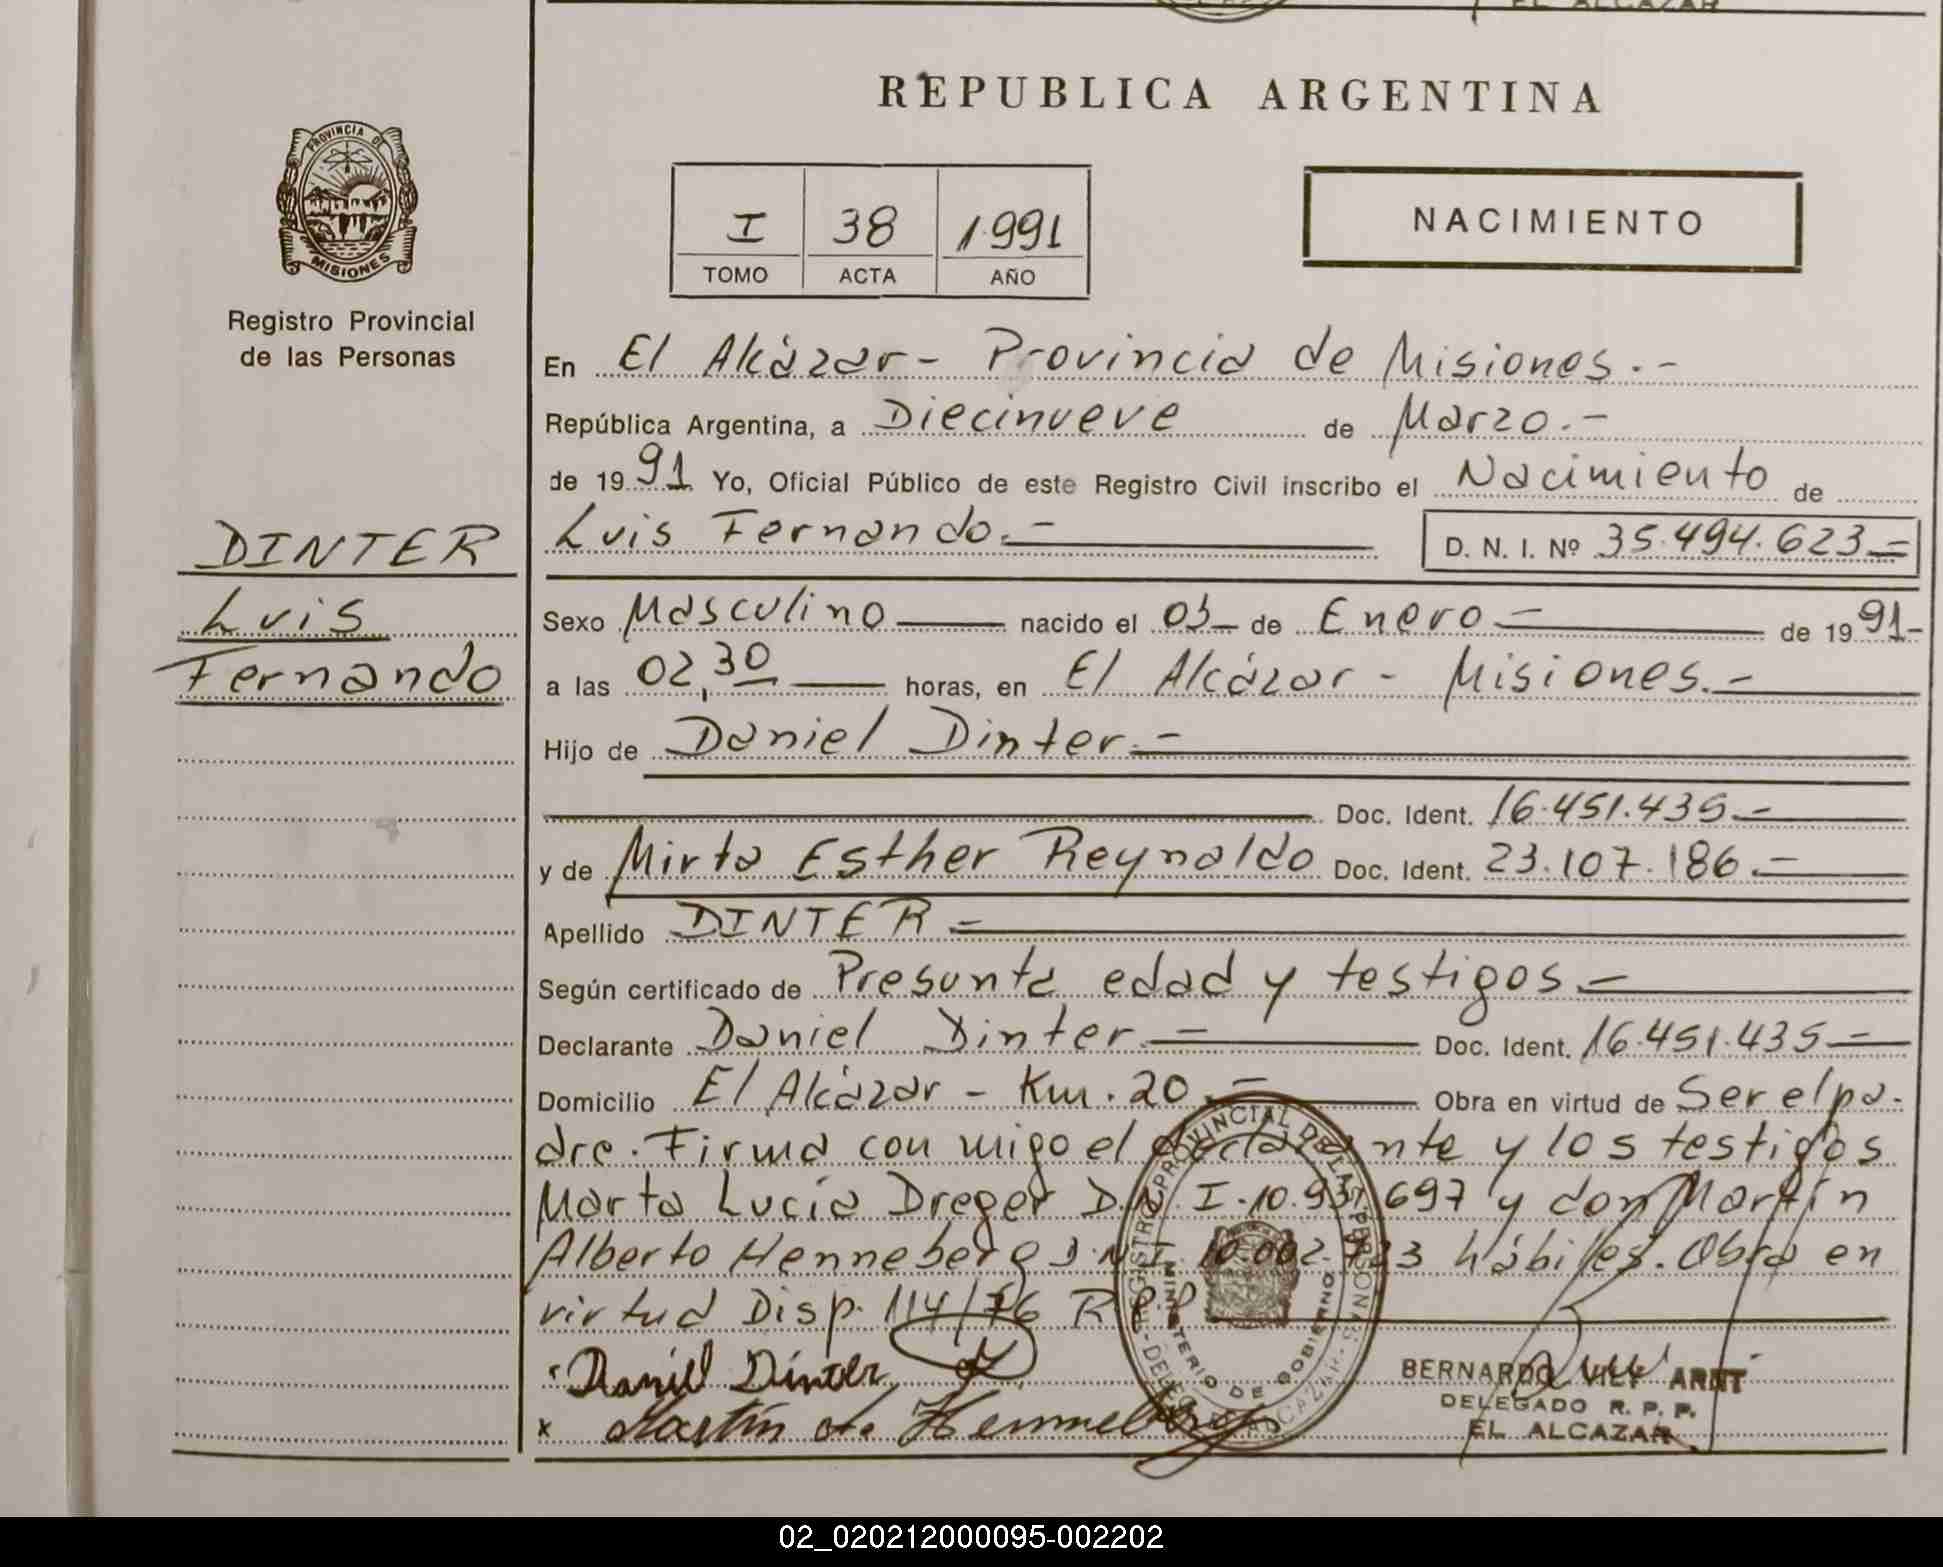 EL ALCAZAR
REPUBLICA ARGENTINA
PROVINCIA DE
MISIONES
Registro Provincial
de las Personas
I 38 1991
TOMO ACTA AÑO
NACIMIENTO
En El Alcázar - Provincia de Misiones.-
República Argentina, a Diecinueve de Marzo.-
de 1991 Yo, Oficial Público de este Registro Civil inscribo el Nacimiento de
Luis Fernando.- D. N. I. Nº 35.494.623-
DINTER
Luis
Fernando
Sexo Masculino nacido el 03 de Enero - de 1991-
a las 02,30 horas, en El Alcázar - Misiones.-
Hijo de Daniel Dinter.-
Doc. Ident. 16.451.435.-
y de Mirta Esther Reynaldo Doc. Ident. 23.107.186.-
Apellido DINTER -
Según certificado de Presunta edad y testigos.-
Declarante Daniel Dinter - Doc. Ident. 16.451.435-
Domicilio El Alcázar - Km. 20.- Obra en virtud de Ser el pa-
dre. Firma con migo el declarante y los testigos
Marta Lucía Dreger D.N.I. 697 y don Martín
Alberto Henneberg D.N.I. 10.002. hábiles. Obra en
virtud Disp. 114/76 R.P.P.
Daniel Dinter
x Martín A. Henneberg
REGISTRO PROVINCIAL DE LAS PERSONAS
MINISTERIO DE GOBIERNO
BERNARDO ARNT
DELEGADO R. P. P.
EL ALCAZAR
02_020212000095-002202